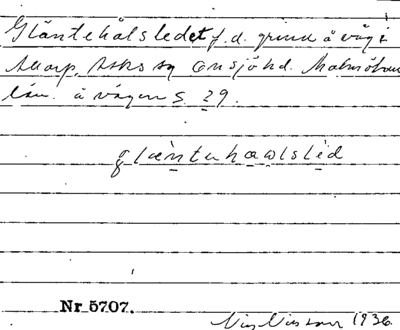 Gläntehålsledet f.d. grind å väg i
Allarp, Asks sn Onsjö hd. Malmöhus
län. å vägen S. 29.
glæntehawlslèd
Nr 5707.
Nils Nilsson 1936